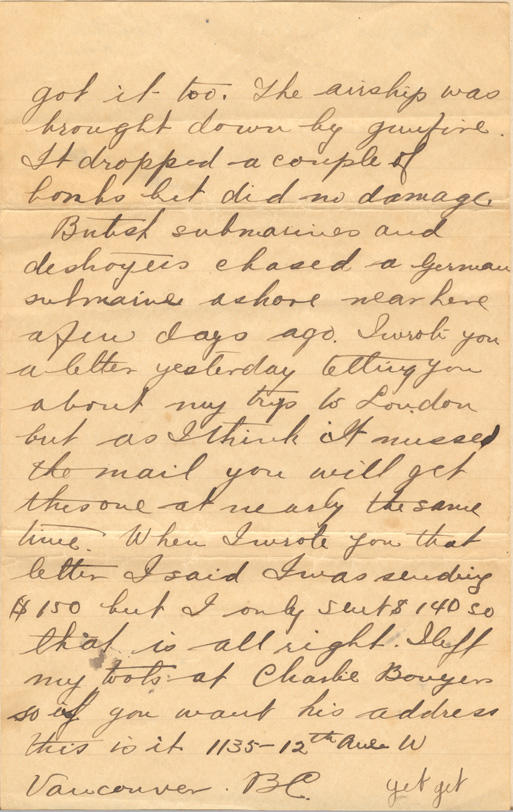 got it too. The airship was
brought down by gunfire.
It dropped a couple of
bombs but did no damage.
British submarines and
destroyers chased a German
submarine ashore near here
a few days ago. I wrote you
a letter yesterday telling you
about my trip to London
but as I think it missed
the mail you will get
this one at nearly the same
time. When I wrote you that
letter I said I was sending
$150 but I only sent $140 so
that is all right. I left
my tools at Charlie Bowyers
so if you want his address
this is it 1135-12th Ave W
Vancouver. B.C. get get